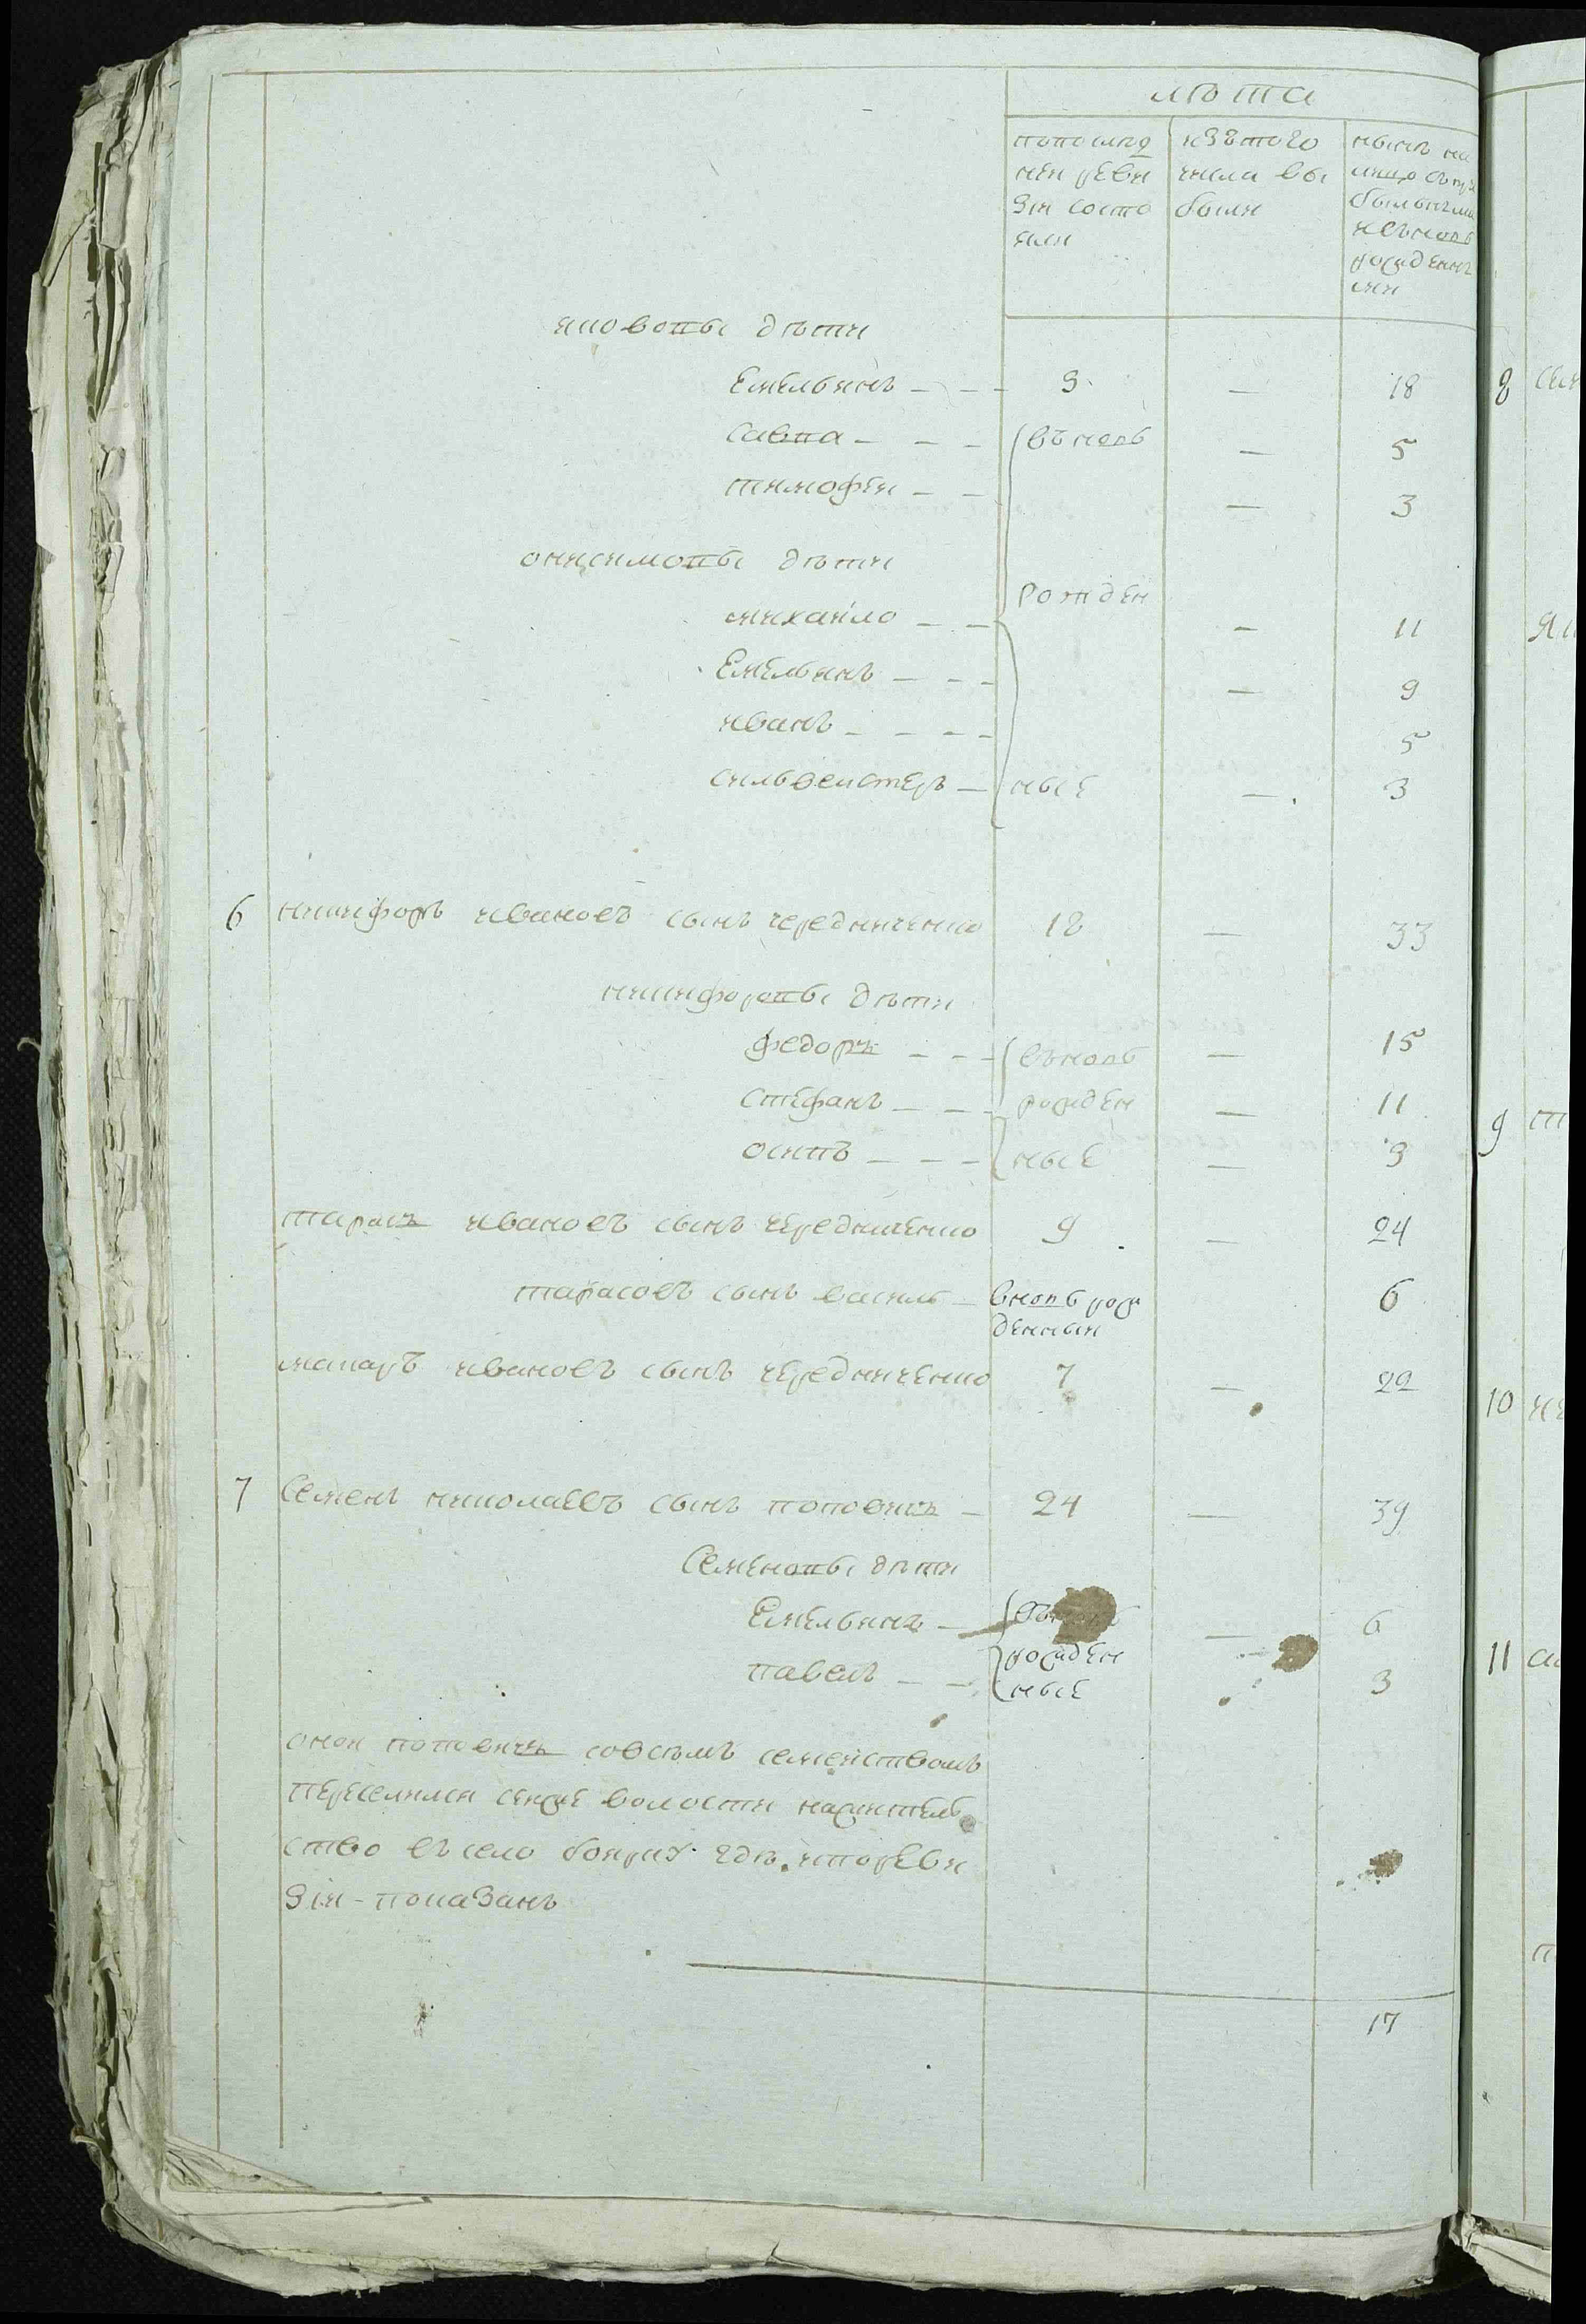 лѣта
попослѣд
ней реви
зіи состо
яли
изътого
числа вы
были
нынѣ на
лицо съпри
былыми
исъновь
рожденны
ми
яковавы дѣти
Емельянъ - - - 9 — 18
Савва - - - въновь — 5
тимофей - - — 3
онисимовы дѣти
рожден
михайло - - — 11
Емельянъ - - - — 9
иванъ - - - - 5
сильвейстеръ - ные — 3
6 никифоръ ивановъ сынъ чередниченко 18 — 33
никифоровы дѣти
федоръ - - - въновь — 15
Стефанъ - - рожден — 11
осипъ - - - ные — 9
тарасъ ивановъ сынъ чередниченко 9 — 24
тарасовъ сынъ василь - вновь рож 6
денный
макаръ ивановъ сынъ чередниченко 7 — 22
7 Семенъ николаевъ сынъ поповичъ - 24 — 39
Семеновы дѣти
Емельянъ - въновь — 6
рожден
павелъ - - ные 3
оной поповичъ совсѣмъ семействомъ
переселился сейже волости нажитель
ство въ село боярку гдѣ, и по реви
зіи - показанъ
17
8
9
10
11